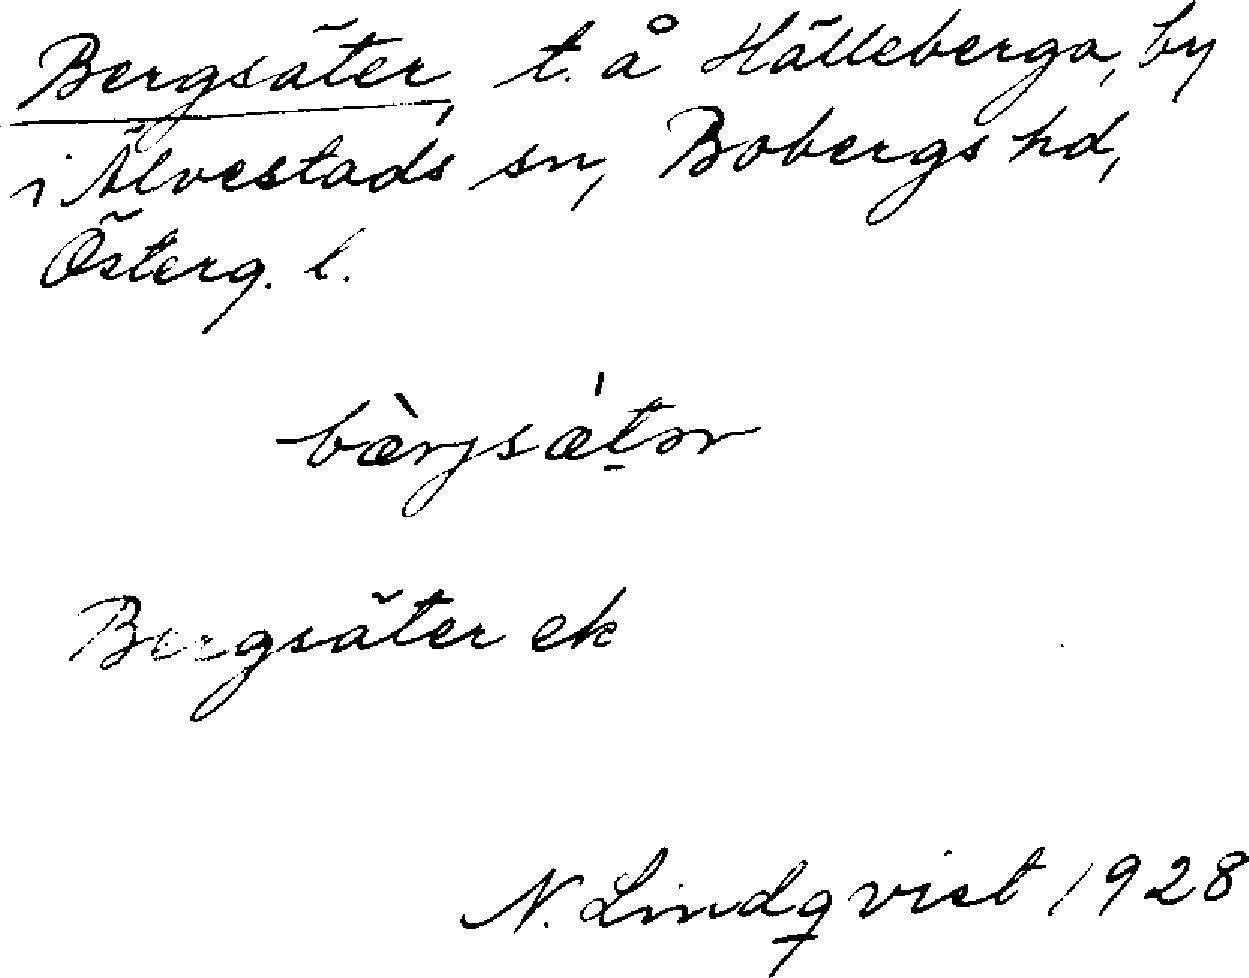 Bergsäter, t. å Hälleberga, by
i Älvestads sn, Bobergs hd,
Österg. l.
bæ̀rjsǽtər
Bergsäter ek
N. Lindqvist 1928